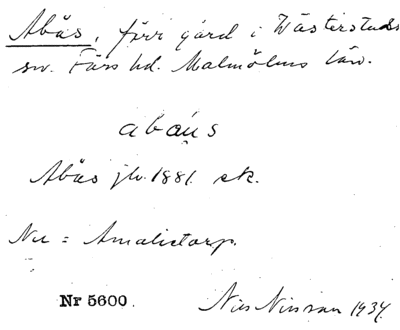 Abås, förr gård i Västerstads
sn. Färs hd. Malmöhus län.
abáus
Abås jb. 1881. ek.
Nu = Amalietorp.
Nr 5600
Nils Nilsson 1934.